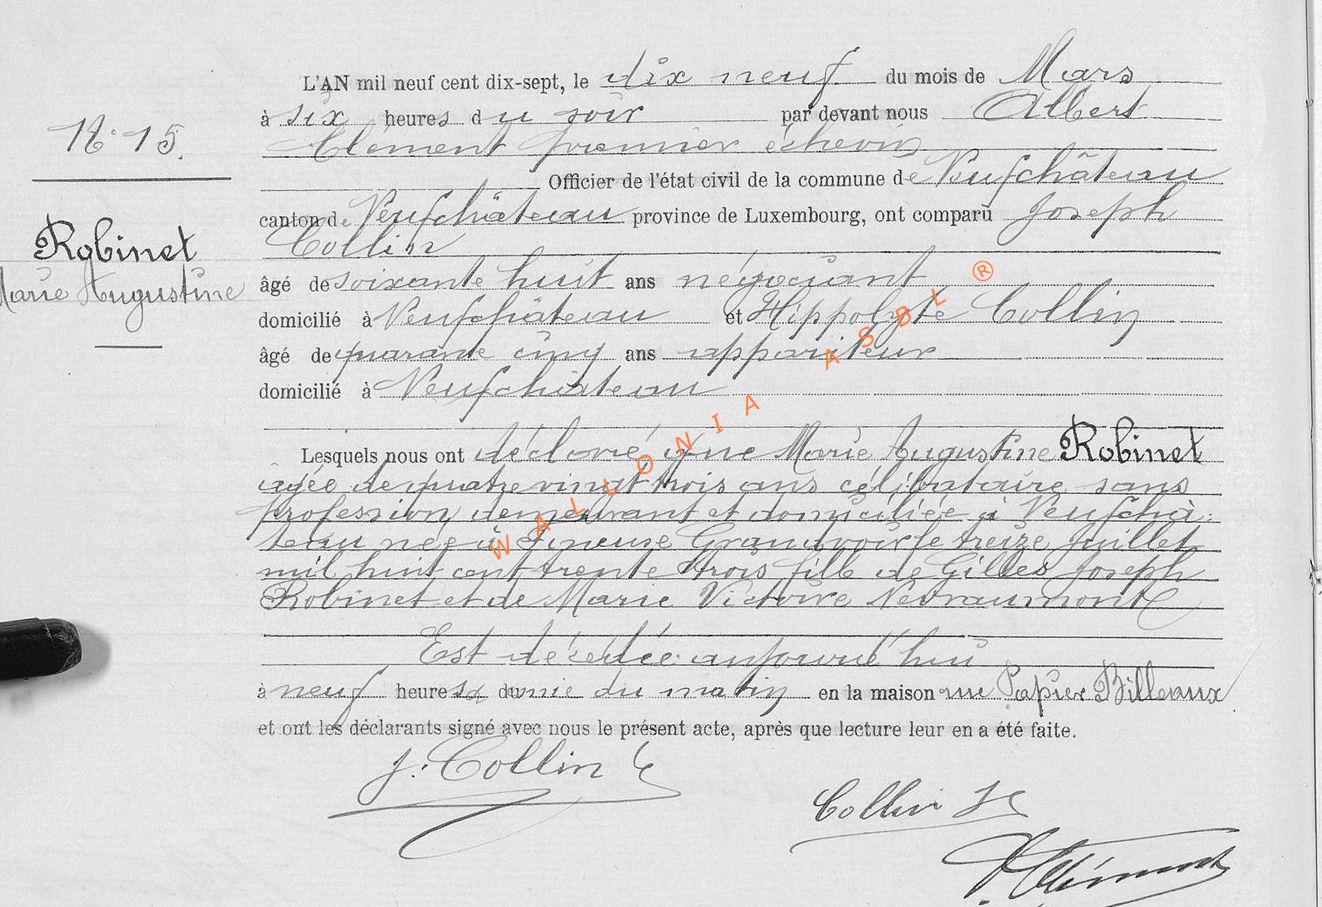 N° 15.
Robinet
Marie Augustine
L'AN mil neuf cent dix-sept, le dix neuf du mois de Mars
à six heures du soir par devant nous Albert
Clément premier échevin
Officier de l'état civil de la commune de Neufchâteau
canton de Neufchâteau province de Luxembourg, ont comparu Joseph
Collin
âgé de soixante huit ans négociant
domicilié à Neufchâteau et Hippolyte Collin
âgé de quarante cinq ans appariteur
domicilié à Neufchâteau
Lesquels nous ont déclaré que Marie Augustine Robinet
âgée de quatre vingt trois ans célibataire sans
profession demeurant et domiciliée à Neufchâ-
teau née à Grandvoir le treize Juillet
mil huit cent trente trois fille de Gilles Joseph
Robinet et de Marie Victoire Nevraumont
Est décédée aujourd'hui
à neuf heures du matin en la maison rue Papier Billeaux
et ont les déclarants signé avec nous le présent acte, après que lecture leur en a été faite.
J. Collin
Collin H
A Clément
WALLONIA ASBL ®